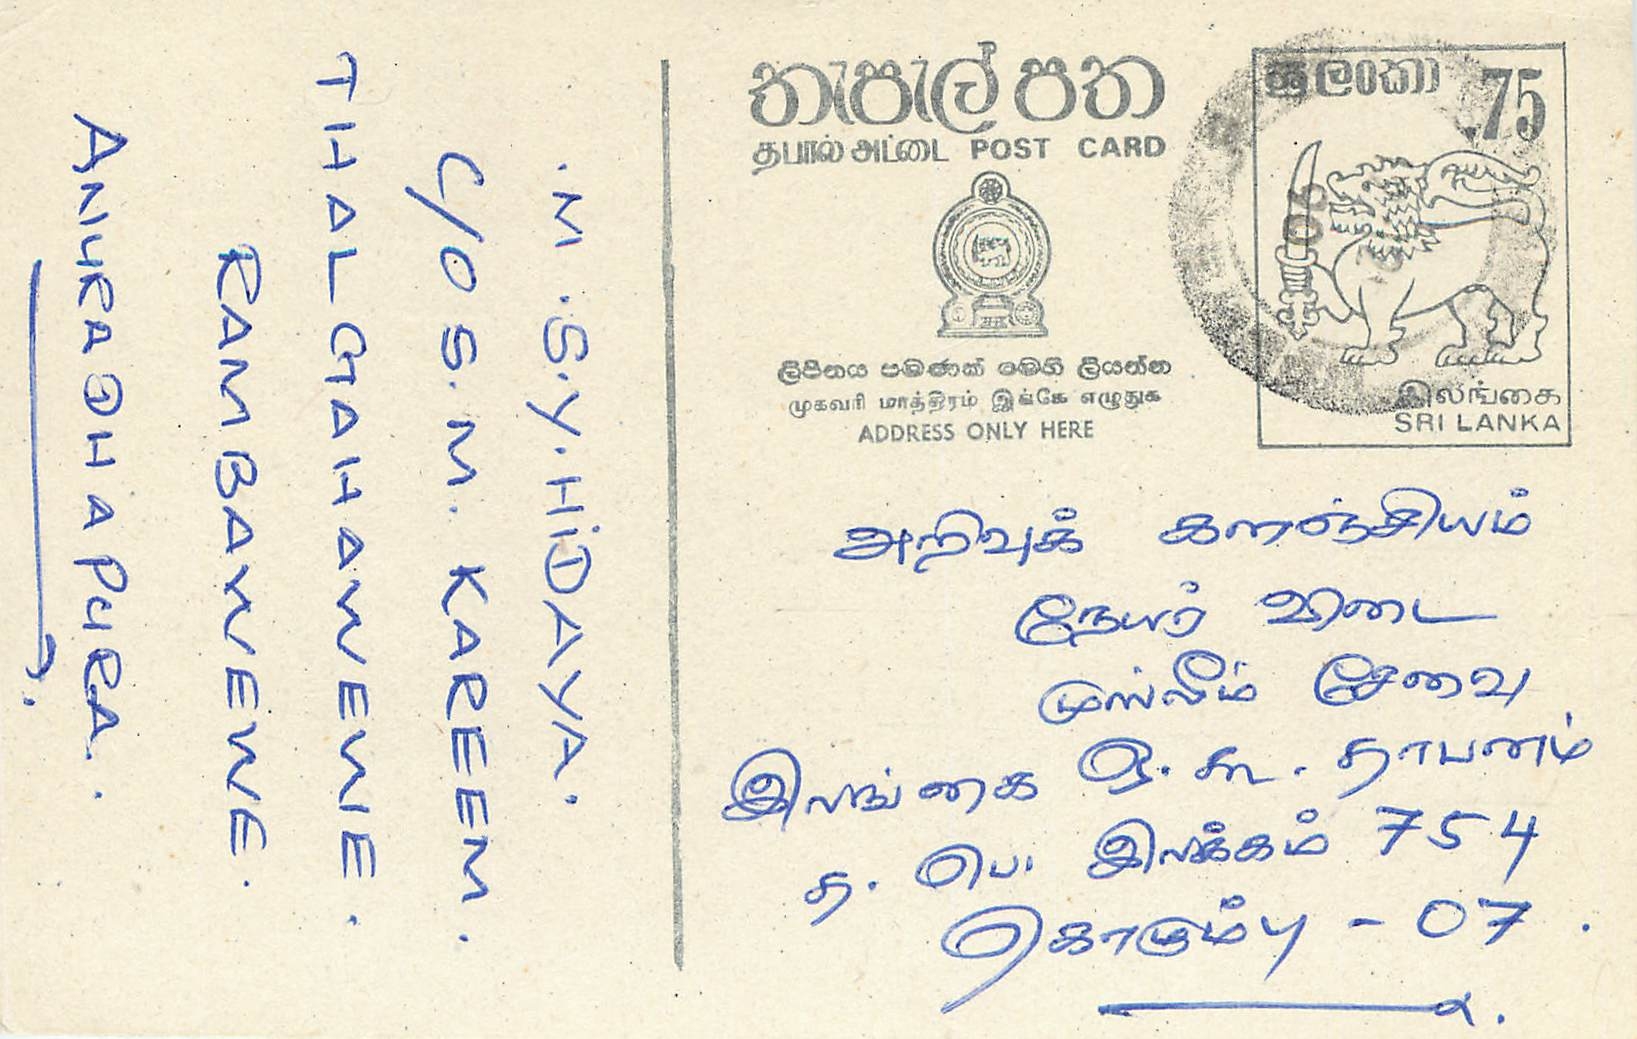 M.S.Y. HIDAYA.
C/O S.M. KAREEM.
THALGAHAWEWE.
RAMBAWEWE.
ANURADHAPURA.
තැපැල් පත
தபால் அட்டை POST CARD
ලිපිනය පමණක් මෙහි ලියන්න
முகவரி மாத்திரம் இங்கே எழுதுக
ADDRESS ONLY HERE
ශ්‍රී ලංකා .75
இலங்கை
SRI LANKA
அறிவுக் களஞ்சியம்
நேயர் விடை
முஸ்லீம் சேவை
இலங்கை ஒ. கூ. தாபனம்
த. பெ. இலக்கம் 754
கொழும்பு - 07.